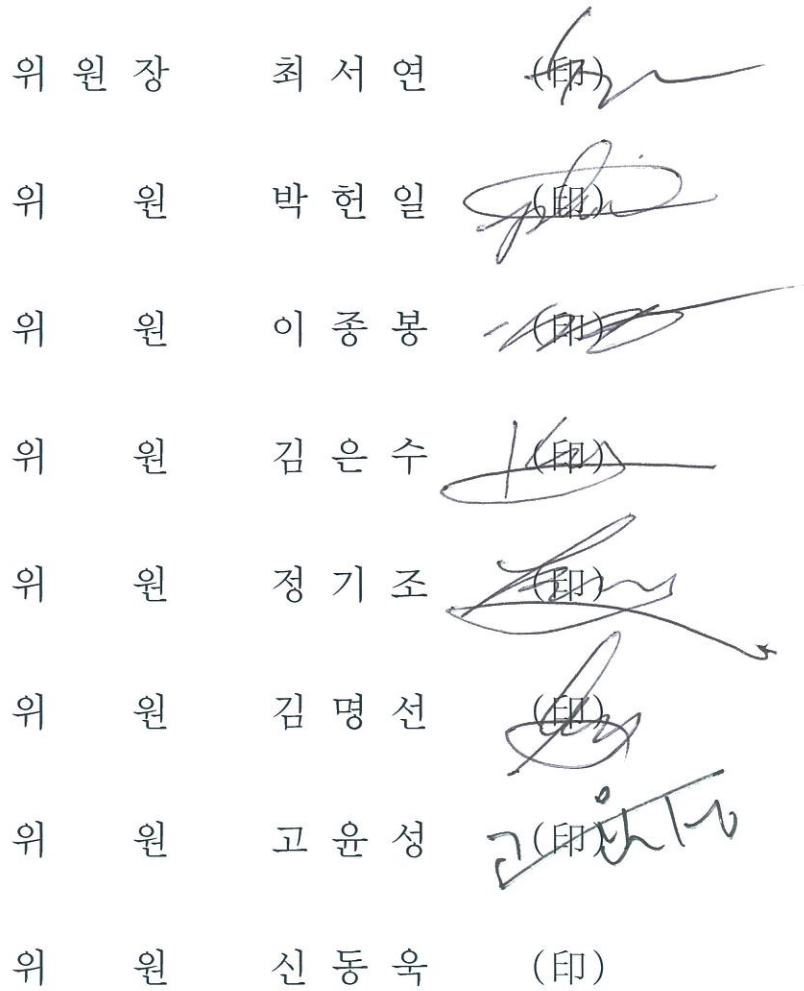 위 원 장 최 서 연 (印)
위 원 박 헌 일 (印)
위 원 이 종 봉 (印)
위 원 김 은 수 (印)
위 원 정 기 조 (印)
위 원 김 명 선 (印)
위 원 고 윤 성 (印)
위 원 신 동 욱 (印)